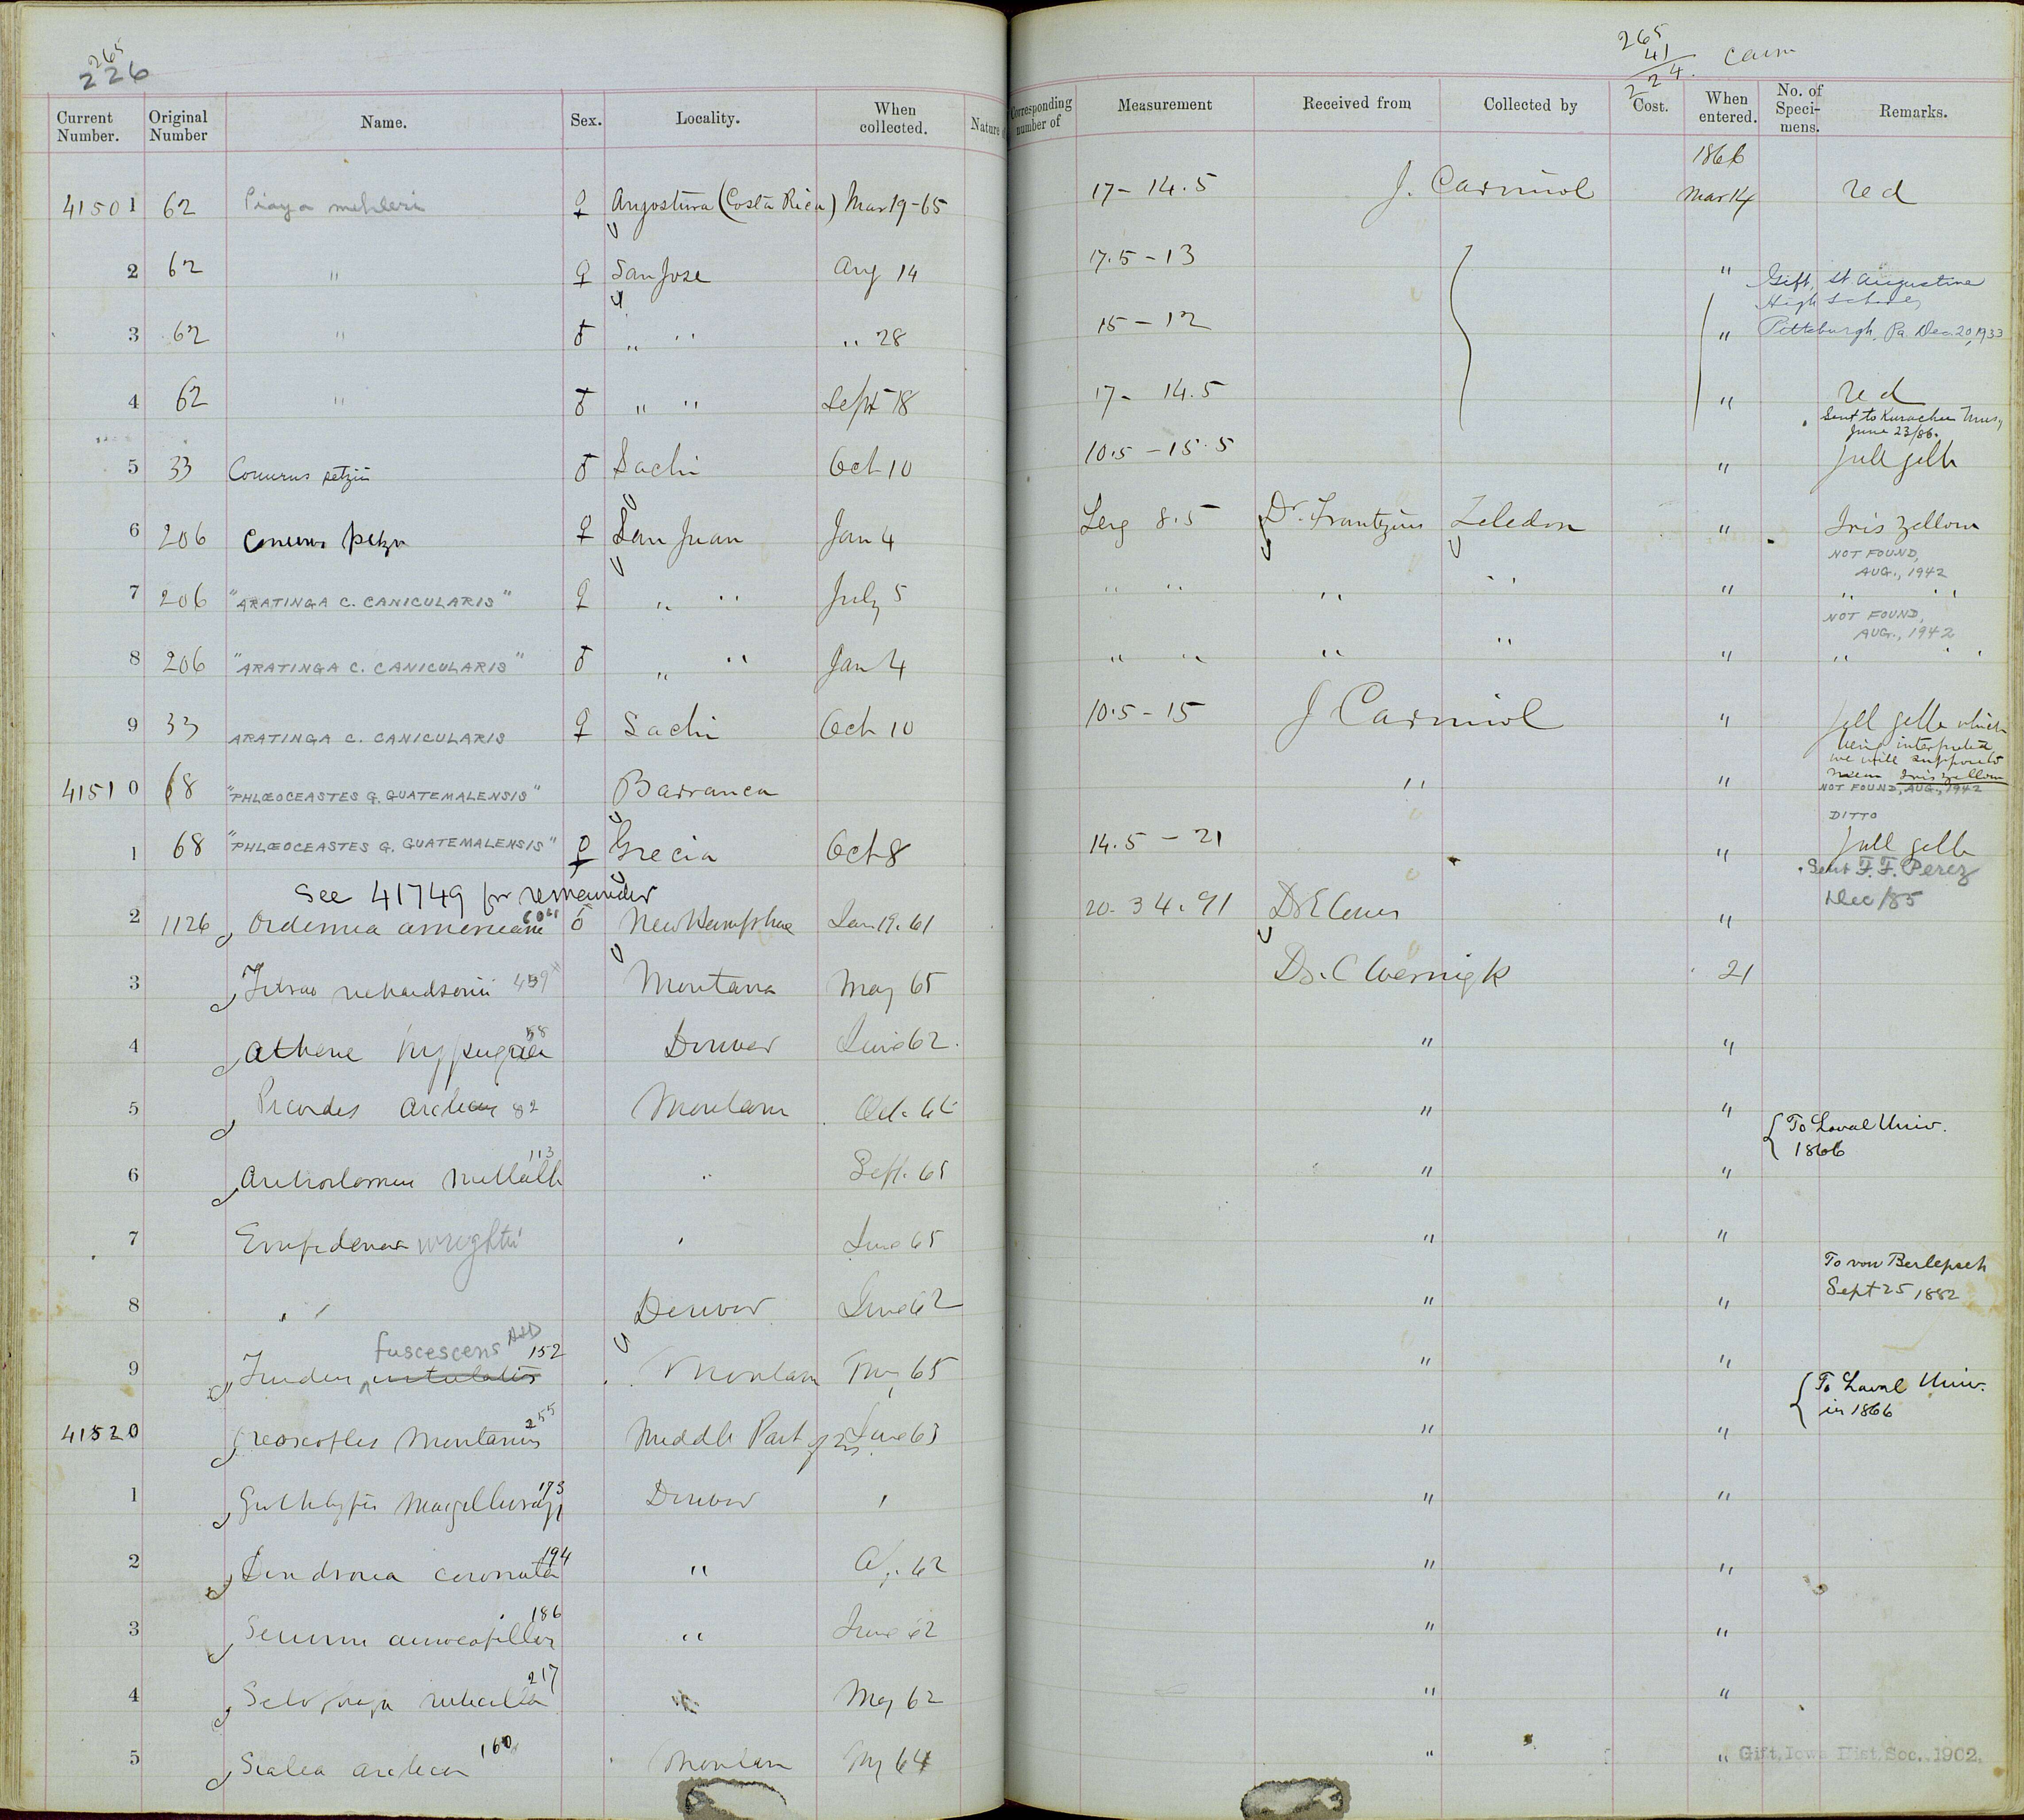 265
226
265
41
224.
Current Number. Original Number Name. Sex. Locality. When collected. Nature Corresponding number of Measurement Received from Collected by Cost. When entered. No. of Specimens. Remarks.
1866
41501 62 Piaya mehleri ♀ Angostura (Costa Rica) Mar 19-65 17 - 14.5 J. Carmiol Mar 14 red
2 62 " ♀ San Jose Aug 14 17.5 - 13 " Gift, St Augustine
High School,
3 62 " ♂ " " " 28 15 - 12 " Pittsburgh, Pa. Dec. 20, 1933
4 62 " ♂ " " Sept 18 17 - 14.5 " red
Sent to Kurachee Mus,
June 23/86.
5 33 Conurus petzii ♂ Sachi Oct 10 10.5 - 15.5 " full gelb
6 206 Conurus petzii ♀ San Juan Jan 4 Leng 8.5 Dr. Frantzius Zeledon " Iris yellow
NOT FOUND,
AUG., 1942
7 206 "ARATINGA C. CANICULARIS" ♀ " " July 5 " " " " " " "
NOT FOUND,
AUG., 1942
8 206 "ARATINGA C. CANICULARIS" ♂ " " Jan 4 " " " " " " "
9 33 ARATINGA C. CANICULARIS ♀ Sachi Oct 10 10.5 - 15 J Carmiol " full gelb which
being interpreted
we will suppose to
mean Iris yellow
41510 68 "PHLŒOCEASTES G. GUATEMALENSIS" Barranca " " NOT FOUND, AUG., 1942
DITTO
1 68 "PHLŒOCEASTES G. GUATEMALENSIS" ♀ Grecia Oct 8 14.5 - 21 " full gelb
Sent F. F. Perez
Dec/85
See 41749 for remainder
2 1126 Oidemia americana 604 ♂ New Hampshire Jan 19. 61 20. 34. 91 Dr E Coues "
3 Tetrao richardsonii 459 Montana May 65 Dr. C Wernigk 21
4 Athene hypugaea 58 Denver June 62. " "
5 Picoides arcticus 82 Montana Oct. " "
To Laval Univ.
1866
6 Antrostomus nuttalli 113 " Sept. 65 " "
7 Empidonax wrightii " June 65 " "
To von Berlepsch
Sept 25 1882
8 " " Denver June 62 " "
fuscescens 152
9 Turdus ustulatus Montana May 65 " "
To Laval Univ.
in 1866
41520 Oreoscoptes montanus 255 Middle Park June 63 " "
1 Geothlypis Macgillivrayi 173 Denver " " "
2 Dendroica coronata 194 " 62 " "
3 Seiurus aurocapillus 186 " June 62 " "
4 Setophaga ruticilla 217 " May 62 " "
5 Sialia arctica 160 Montana My 64 " " Gift, Iowa Hist. Soc. 1902.